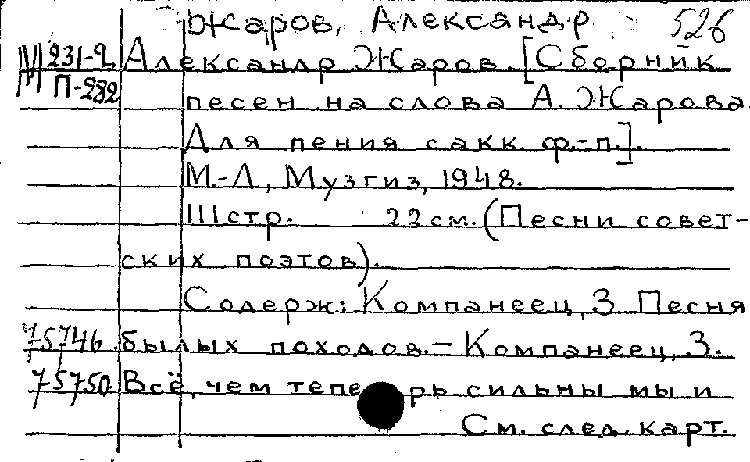 Жаров, Александр 526
М 231-2 Александр Жаров. [Сборник
П-282 песен на слова А. Жарова.
Для пения с акк ф.-п.].
М.-Л., Музгиз, 1948.
111 стр. 22 см. (Песни совет-
ских поэтов).
Содерж: Компанеец, З Песня
75746 былых походов. - Компанеец, З.
75750 Всё, чем теперь сильны мы и
См. след. карт.